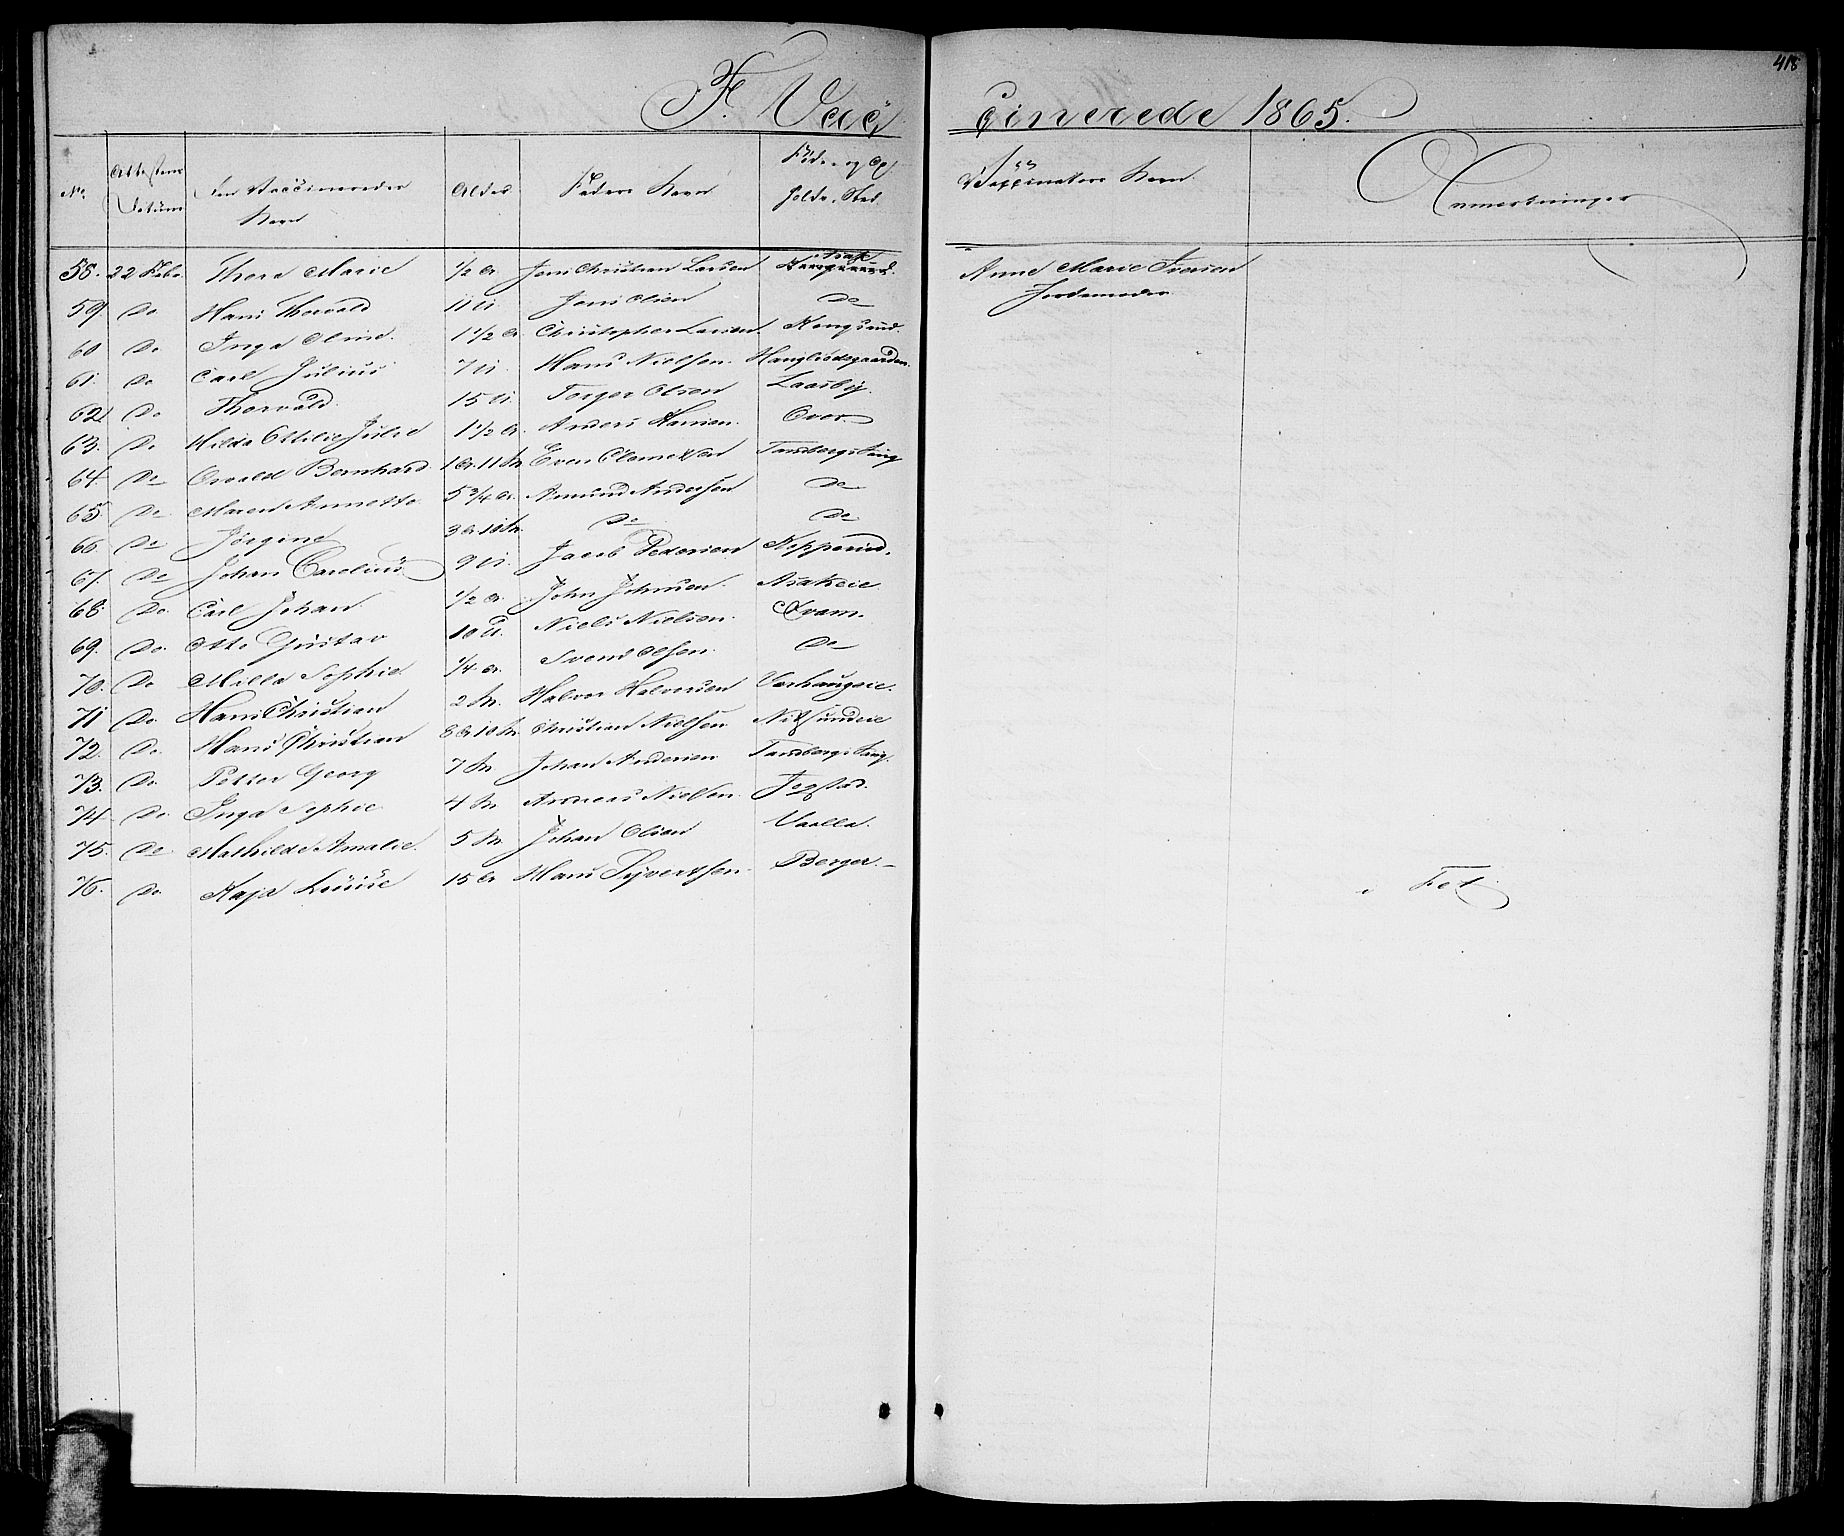 418
F. Vacc cinerede 1865.
No. Attestens Datum Den Vaccineredes Navn Alder Faders Navn Føde- og Op holds-Sted. Vaccinators Navn. Anmerkninger
58. 22 Febr. Thora Marie 1/2 Ar Jens Christian Larsen Anne Marie Iversen
59 Do Hans Thorvald 11 U. Jens Olsen Do Jordemoder
60 Do Inga Oline. 1 1/2 Ar Christopher Larsen. Kongsrud.
61. Do Carl Julius 7 U. Hans Nielsen. Hanglisdegaarden.
62 Do Thorvald. 15 U. Torger Olsen Laasby.
63. Do Hilda Ottilie Julie 1 1/2 Ar. Anders Hansen. Over
64. Do Osvald Bernhard 1 Ar. 11 M. Even Clemetsen
65. Do Maren Annette 5 3/4 Ar. Amund Andersen Do
66. Do Jörgine 3 Ar. 10 M. Do Do
67. Do Johan Carolius 9 U. Jacob Pedersen
68. Do. Carl Johan 1/2 Ar. John Johnsen. Asakeie
69. Do. Otto Gustav 10 U. Niels Nielsen. Svam.
70. Do Milla Sophie 1/4 Ar. Svend Olsen. Do
71 Do. Hans Christian 2 M. Halvor Halvorsen Varhaugeie.
72. Do. Hans Christian 8 Ar 10 M. Christian Nielsen Nitsundeie
73. Do. Petter Georg 7 M. Johan Andersen
74 Do. Inga Sophie. 4 M. Andreas Nielsen. Jegstad.
75. Do Mathilde Amalie. 5 M. Johan Olsen Vaalla.
76. Do. Kaja Louise 15 Ar Hans Syvertsen. Berger.— i Fet